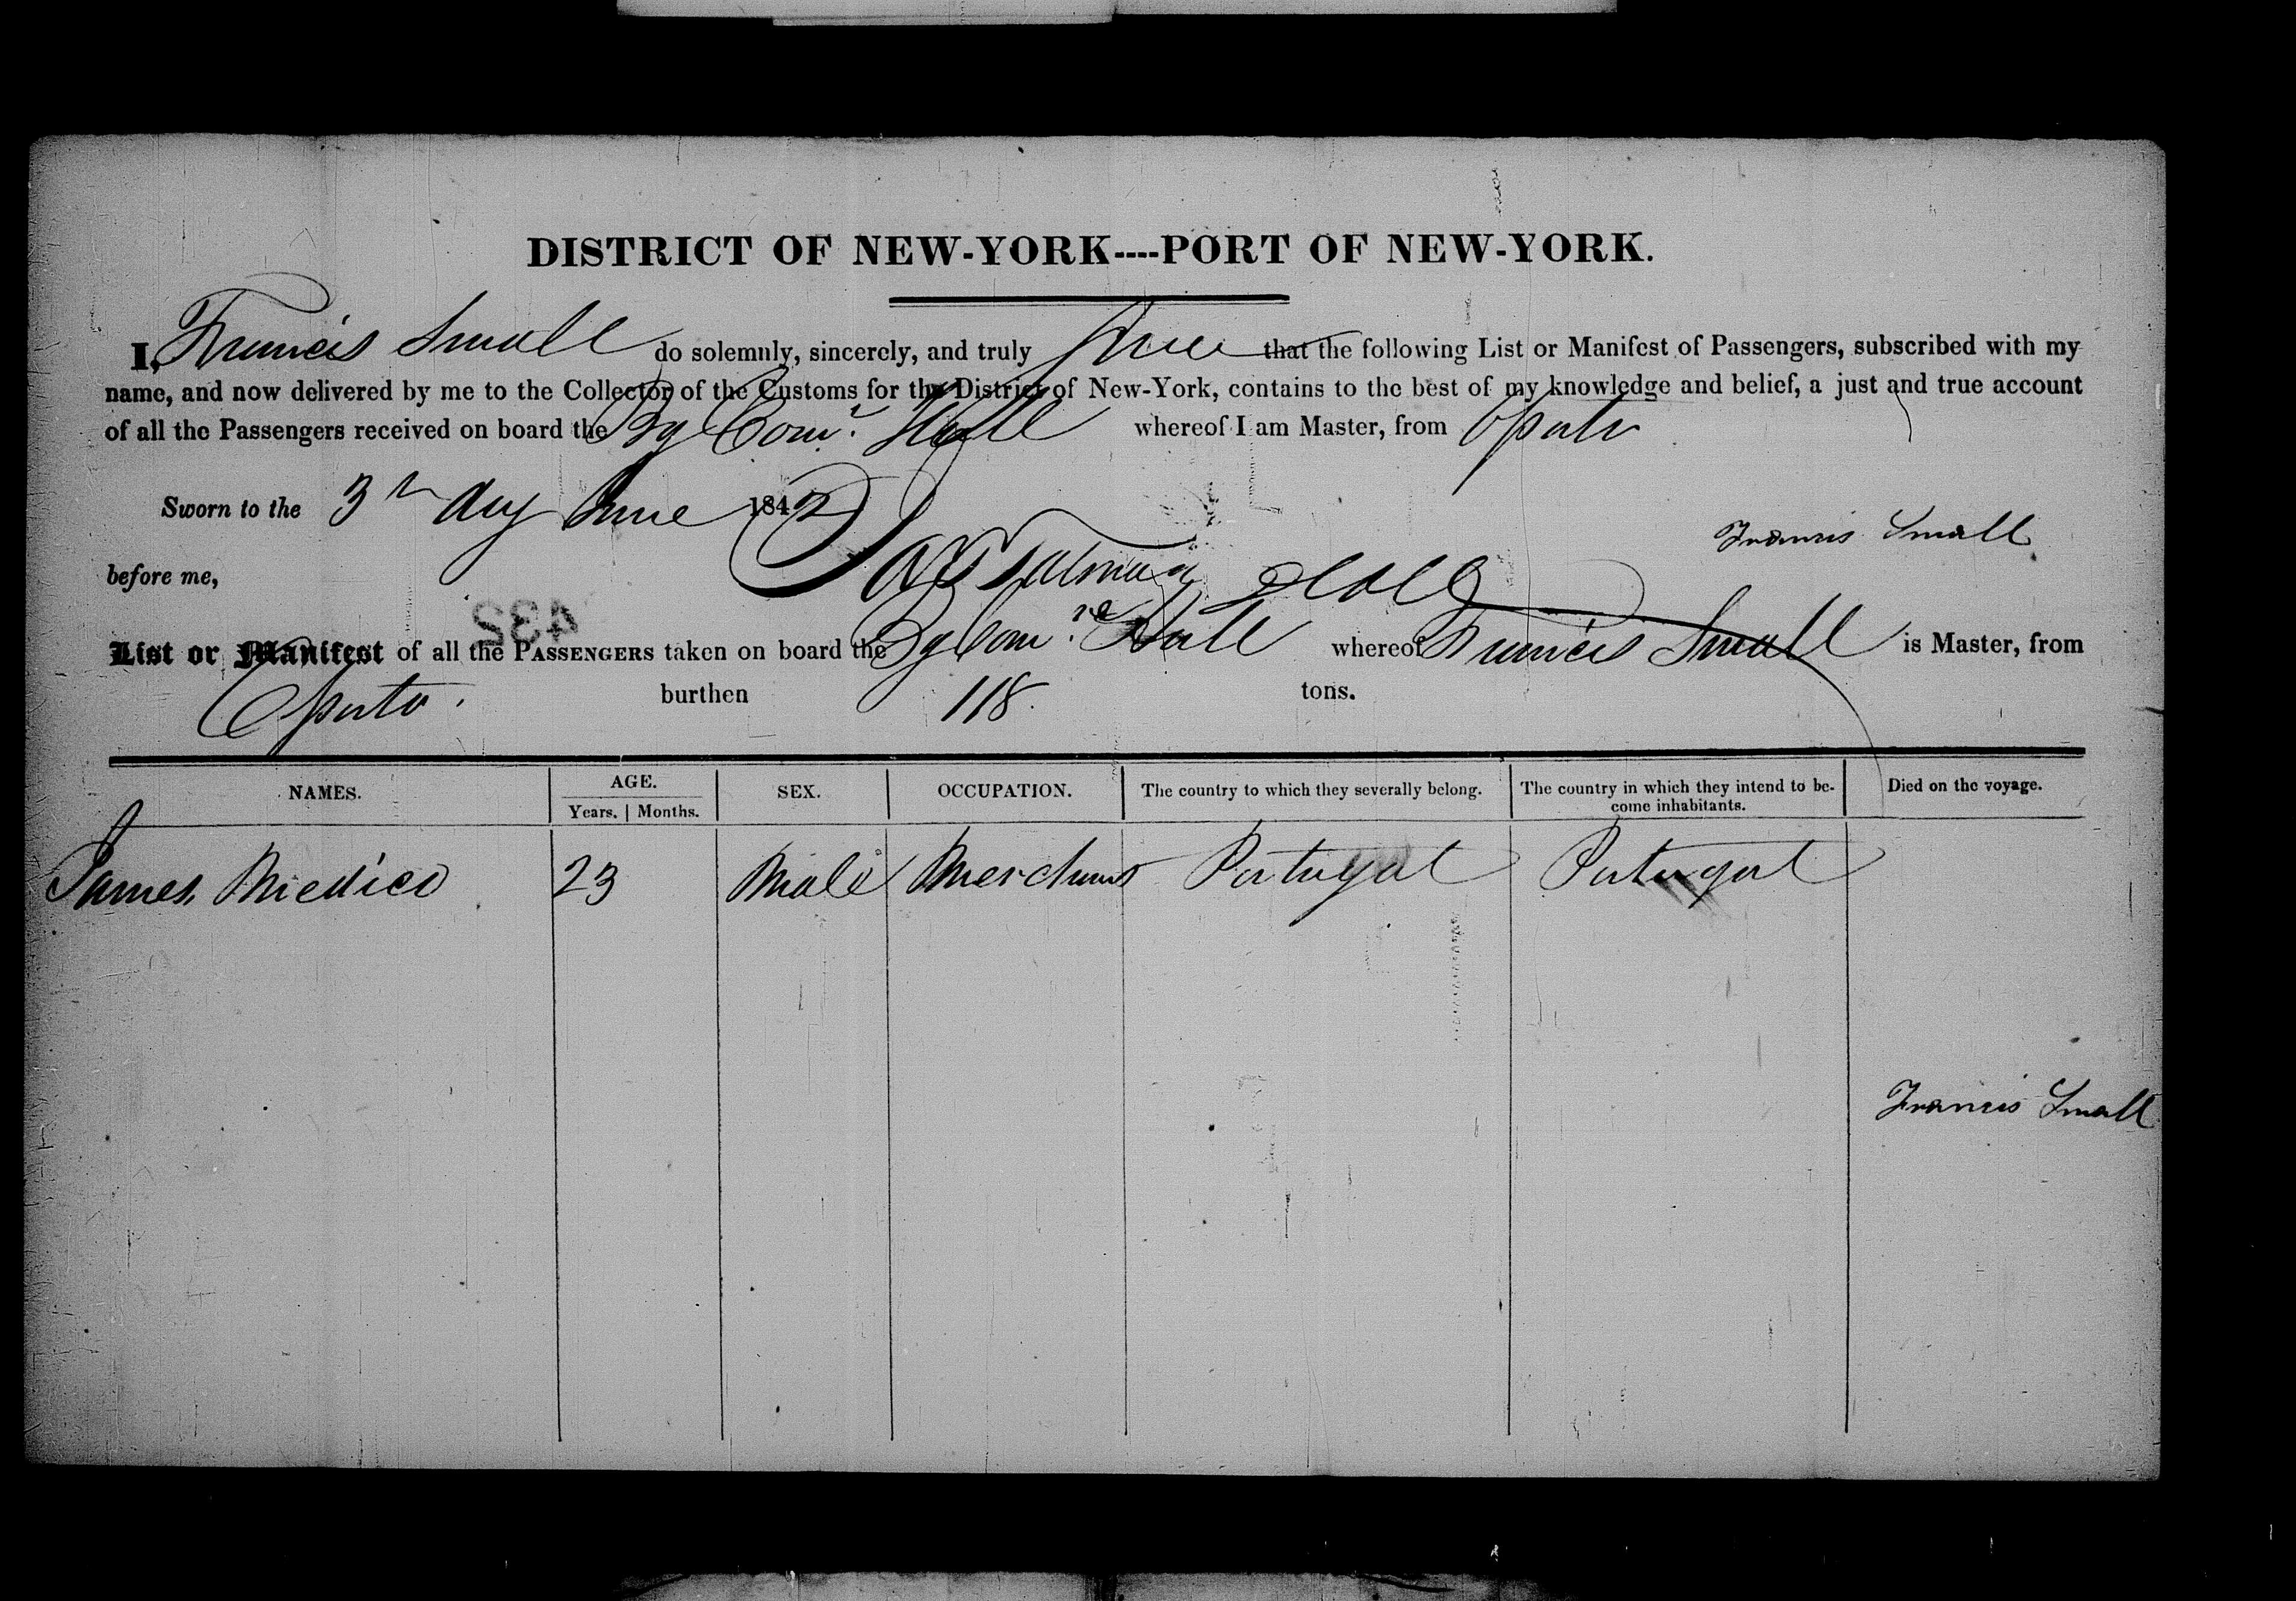 DISTRICT OF NEW-YORK----PORT OF NEW-YORK.
I, Francis Small do solemnly, sincerely, and truly swear that the following List or Manifest of Passengers, subscribed with my
name, and now delivered by me to the Collector of the Customs for the District of New-York, contains to the best of my knowledge and belief, a just and true account
of all the Passengers received on board the Bg Comr. Hull whereof I am Master, from Oporto
Sworn to the 3rd day June 1842
Francis Small
before me,
432
List or Manifest of all the PASSENGERS taken on board the Bg Comre. Hull whereof Francis Small is Master, from
Oporto. burthen 118 tons.
NAMES. AGE. SEX. OCCUPATION. The country to which they severally belong. The country in which they intend to be- Died on the voyage.
Years. Months. come inhabitants.
James Medico 23 Male Merchant Portugal Portugal
Francis Small